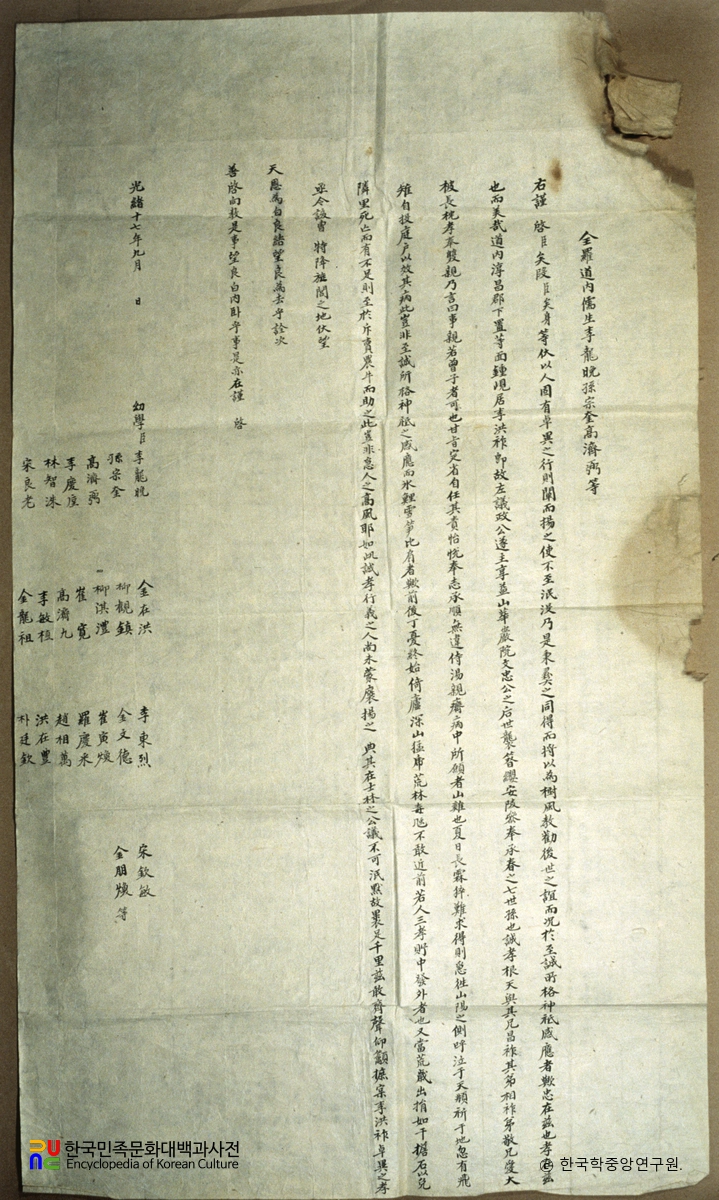 全羅道內儒生李龍晩孫宗全高濟弼等
右謹 啓臣矣段臣矣身等伏以人固有卓異之行則闡而揚之使不至泯沒乃是秉彛之同得而將以爲樹風敎勸後世之誼而況於至誠所格神祗感應者歟忠在玆也孝在玆
也而美哉道內淳昌郡下置等面鍾峴居李洪祚卽故左議政公遂主享益山華巖院文忠公之后世襲簪纓安陵參奉承春之七世孫也誠孝根天與其兄昌祚其弟相祚弟敬兄愛大
被長枕孝奉雙親乃言曰事親若曾子者可也甘旨定省自任其責怡悅奉志承順無違侍湯親癠病中所願者山雉也夏日長霖猝難求得則急徃山陽之側呼泣于天願祈于地忽有飛
雉自投庭戶以效其病此豈非至誠所格神祗之感應而氷鯉雪筍比肩者歟前後丁憂終始倚廬深山猛虎荒林毒虺不敢近前若人三孝貯中發外者也又當荒歲出捐如干擔石以免
隣里死亡而有不足則至於斥賣農牛而助之此豈非急人之高風耶如此誠孝行義之人尙未蒙褒揚之 典其在士林之公議不可泯默故裹足千里玆敢齊聲仰籲據案李洪祚卓異之孝
亟令該曺 特降旌閭之地伏望
天恩爲白良結望良爲去乎詮次
善啓向敎是事望良白內臥乎事是亦在謹 啓
光緖十七年九月 日 幼學臣李龍晩 金在洪 李東烈 宋欽敏
孫宗全 柳覲鎭 金文德 金朋煥等
高濟弼 柳淇澧 崔寅煥
李慶度 崔寬 羅慶釆
林智洙 高濟九 趙相萬
宋良老 李敏恒 洪在豊
金龍祖 朴廷欽
한국민족문화대백과사전
Encyclopedia of Korean Culture
© 한국학중앙연구원.